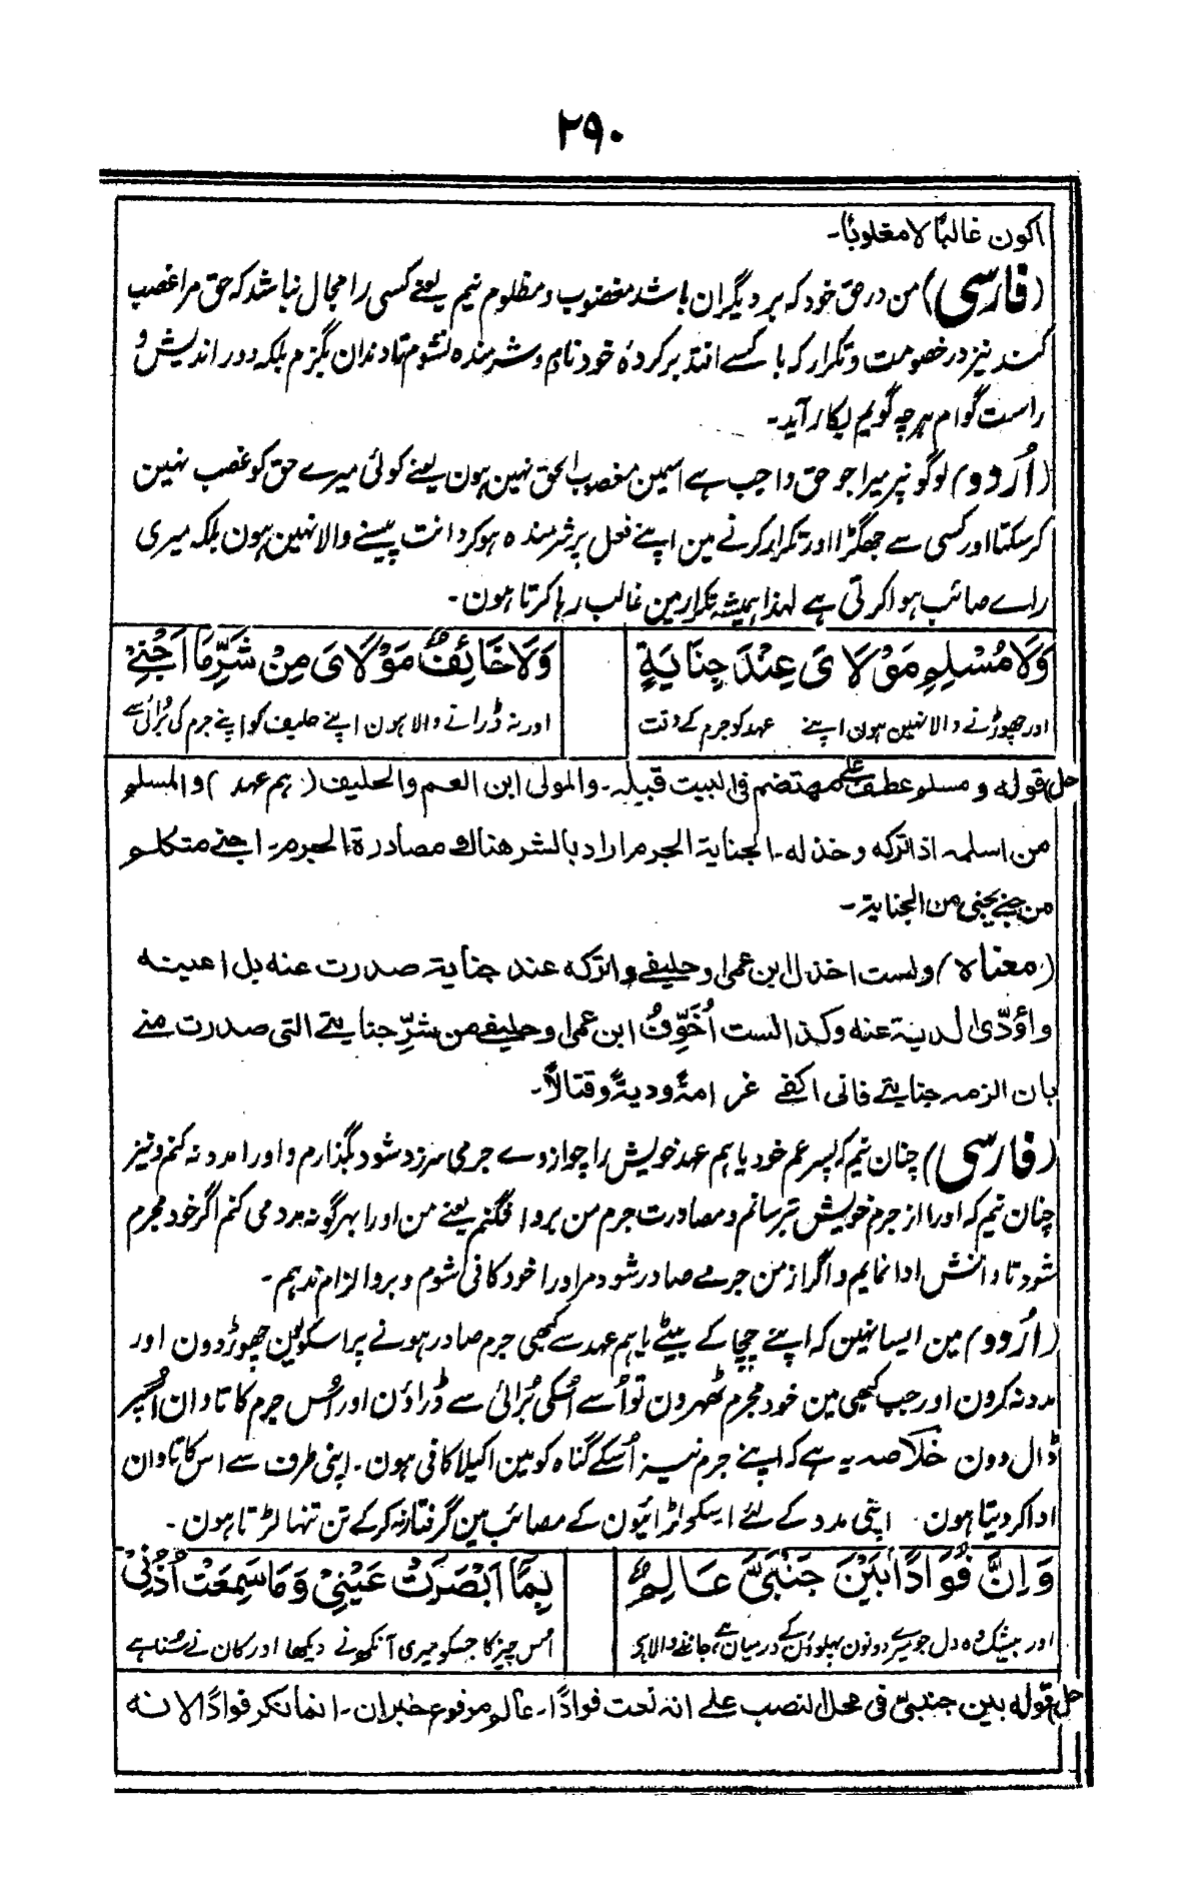 ۲۹۰
اکون غالبًا لا مغلوبًا۔
(فارسی) من در حق خود کہ بر دیگران باشد مغضوب و مظلوم نیم یعنے کسی را مجال نباشد کہ حق مرا غصب
کند نیز در خصومت و تکرار کہ با کسے افتد بر کردہ خود نادم و شرمندہ نشوم تا دندان بگزم بلکہ دور اندیش و
راست گو ام ہرچہ گویم بکار آید۔
(اُردو) لوگونپر میرا جو حق واجب ہے اسمین مغصوب الحق نہین ہون یعنے کوئی میرے حق کو غصب نہین
کر سکتا اور کسی سے جھگڑا اور تکرار کرنے مین اپنے فعل پر شرمندہ ہو کر دانت پیسنے والا نہین ہون بلکہ میری
راے صائب ہوا کرتی ہے لہذا ہمیشہ تکرار مین غالب رہا کرتا ہون۔
وَلَا مُسْلِمٍ مَوْلَایَ عِنْدَ جِنَایَةٍ وَلَا خَائِفٌ مَوْلَایَ مِنْ شَرِّ مَا اَجْنِیْ
اور چھوڑنے والا نہین ہون اپنے عہد کو جرم کے وقت اور نہ ڈرانے والا ہون اپنے حلیف کو اپنے جرم کی بُرائی سے
حل) قولہ و مسلم عطف علی مھتضم فی البیت قبیلہ۔ والمولی ابن العم والحلیف (ہم عہد) والمسلم
من اسلمہ اذا ترکہ و خذلہ۔ الجنایة الجرم اراد بالشر ھنالک مصادرة الجرم۔ اجنے متکلم
من جنے یجنی من الجنایة۔
(معناہ) ولست اخذل ابن عمی او حلیفے واترکہ عند جنایة صدرت عنہ بل اعینہ
واؤدّی الدیة عنہ وکذا لست اُخَوِّفُ ابن عمی او حلیفے من شرِّ جنایتے التی صدرت منے
بان الزمہ جنایتے فانی اکفے غرامةً ودیةً وقتالًا۔
(فارسی) چنان نیم کہ پسر عم خود یا ہم عہد خویش را چو از وے جرمی سرزد شود بگذارم و اورا مدد نہ کنم و نیز
چنان نیم کہ اورا از جرم خویش بترسانم و مصادرت جرم من برو افگنم یعنے من اورا بہر گونہ مدد می کنم اگر خود مجرم
شود تاوانش ادا نمایم و اگر از من جرمے صادر شود مراورا خود کافی شوم و بروا لزام ندہم۔
(اُردو) مین ایسا نہین کہ اپنے چچا کے بیٹے یا ہم عہد سے کبھی جرم صادر ہونے پر اسکو یون چھوڑ دون اور
مدد نہ کرون اور جب کبھی مین خود مجرم ٹھہرون تو اُسے اُسکی بُرائی سے ڈراؤن اور اُس جرم کا تاوان اُسپر
ڈال دون خلاصہ یہ ہے کہ اپنے جرم نیز اُسکے گناہ کو مین اکیلا کافی ہون۔ اپنی طرف سے اس کا تاوان
ادا کر دیتا ہون۔ اپنی مدد کے لئے اسکو لڑائیون کے مصائب مین گرفتار نہ کر کے تن تنہا لڑتا ہون۔
وَاِنَّ فُوَادًا بَیْنَ جَنْبَیَّ عَالِمٌ بِمَا اَبْصَرَتْ عَیْنِیْ وَمَا سَمِعَتْ اُذْنِیْ
اور بیشک وہ دل جو میرے دونون پہلوؤن کے درمیان ہے، جاننے والا ہے اُس چیز کا جسکو میری آنکھ نے دیکھا اور کان نے سُنا ہے
حل) قولہ بین جنبیّ فی محل النصب علے انہ نعت فوادًا۔ عالم مرفوع خبران۔ انما نکر فوادًا لانہ